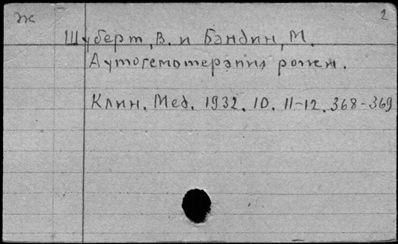 Ж 2
Шуберт, В. и Бэндин, М.
Аутогемотерапия рожи.
Клин. Мед. 1932. 10. 11-12. 368-369